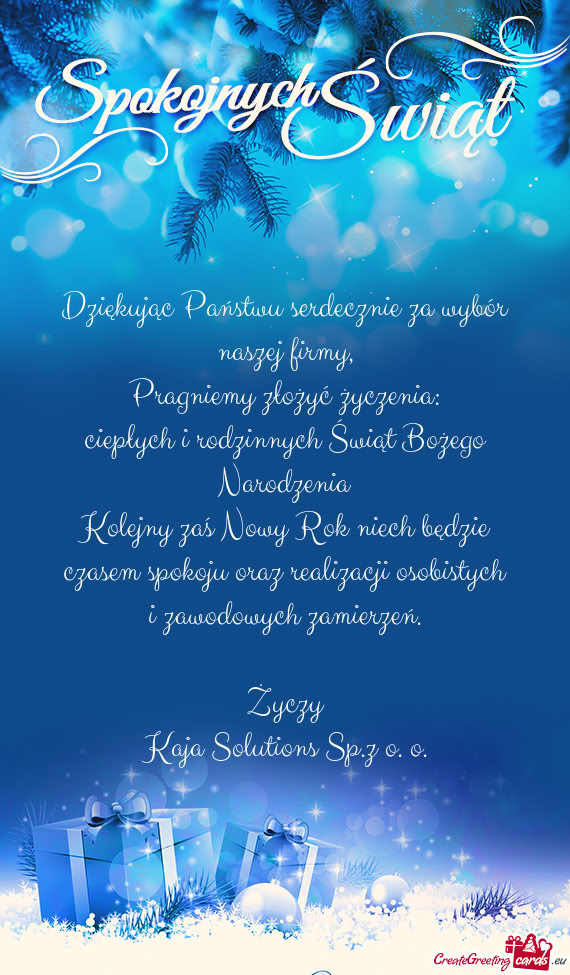 Spokojnych Świąt
Dziękując Państwu serdecznie za wybór
naszej firmy,
Pragniemy złożyć życzenia:
ciepłych i rodzinnych Świąt Bożego
Narodzenia
Kolejny zaś Nowy Rok niech będzie
czasem spokoju oraz realizacji osobistych
i zawodowych zamierzeń.
Życzy
Kaja Solutions Sp.z o. o.
CreateGreeting cards .eu